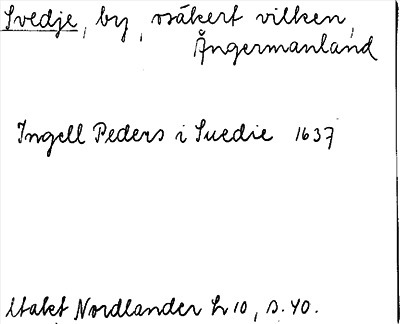 Svedje, by, osäkert vilken,
Ångermanland
Ingell Peders i Suedie 1637
Utakt Nordlander L 10, s. 40.